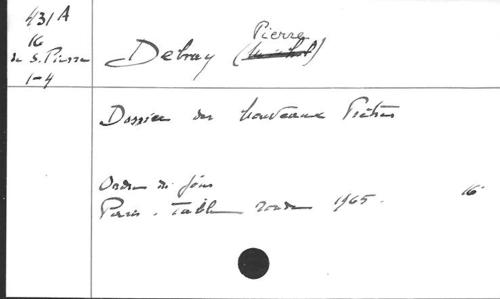 431 A
16
de S. Pierre
1-4
Pierre
Debray (
)
Dossier des Nouveaux Prêtres
Ordre du jour
Paris. Table ronde 1965.
16